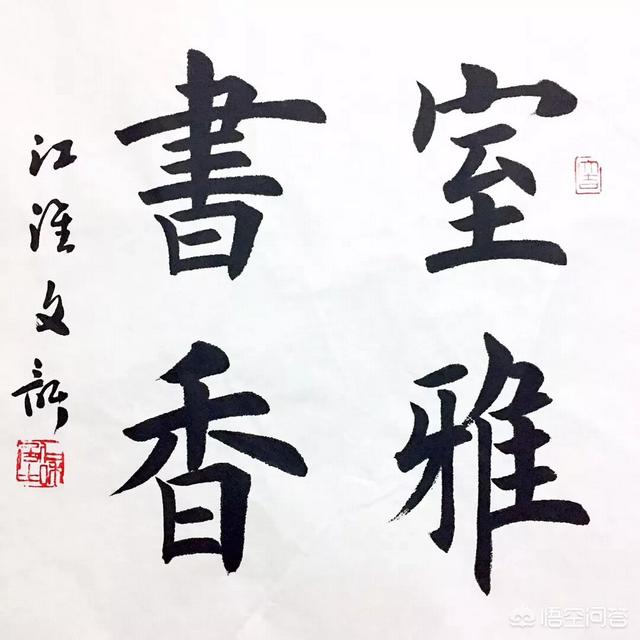 室雅
書香
江淮文新
悟空问答